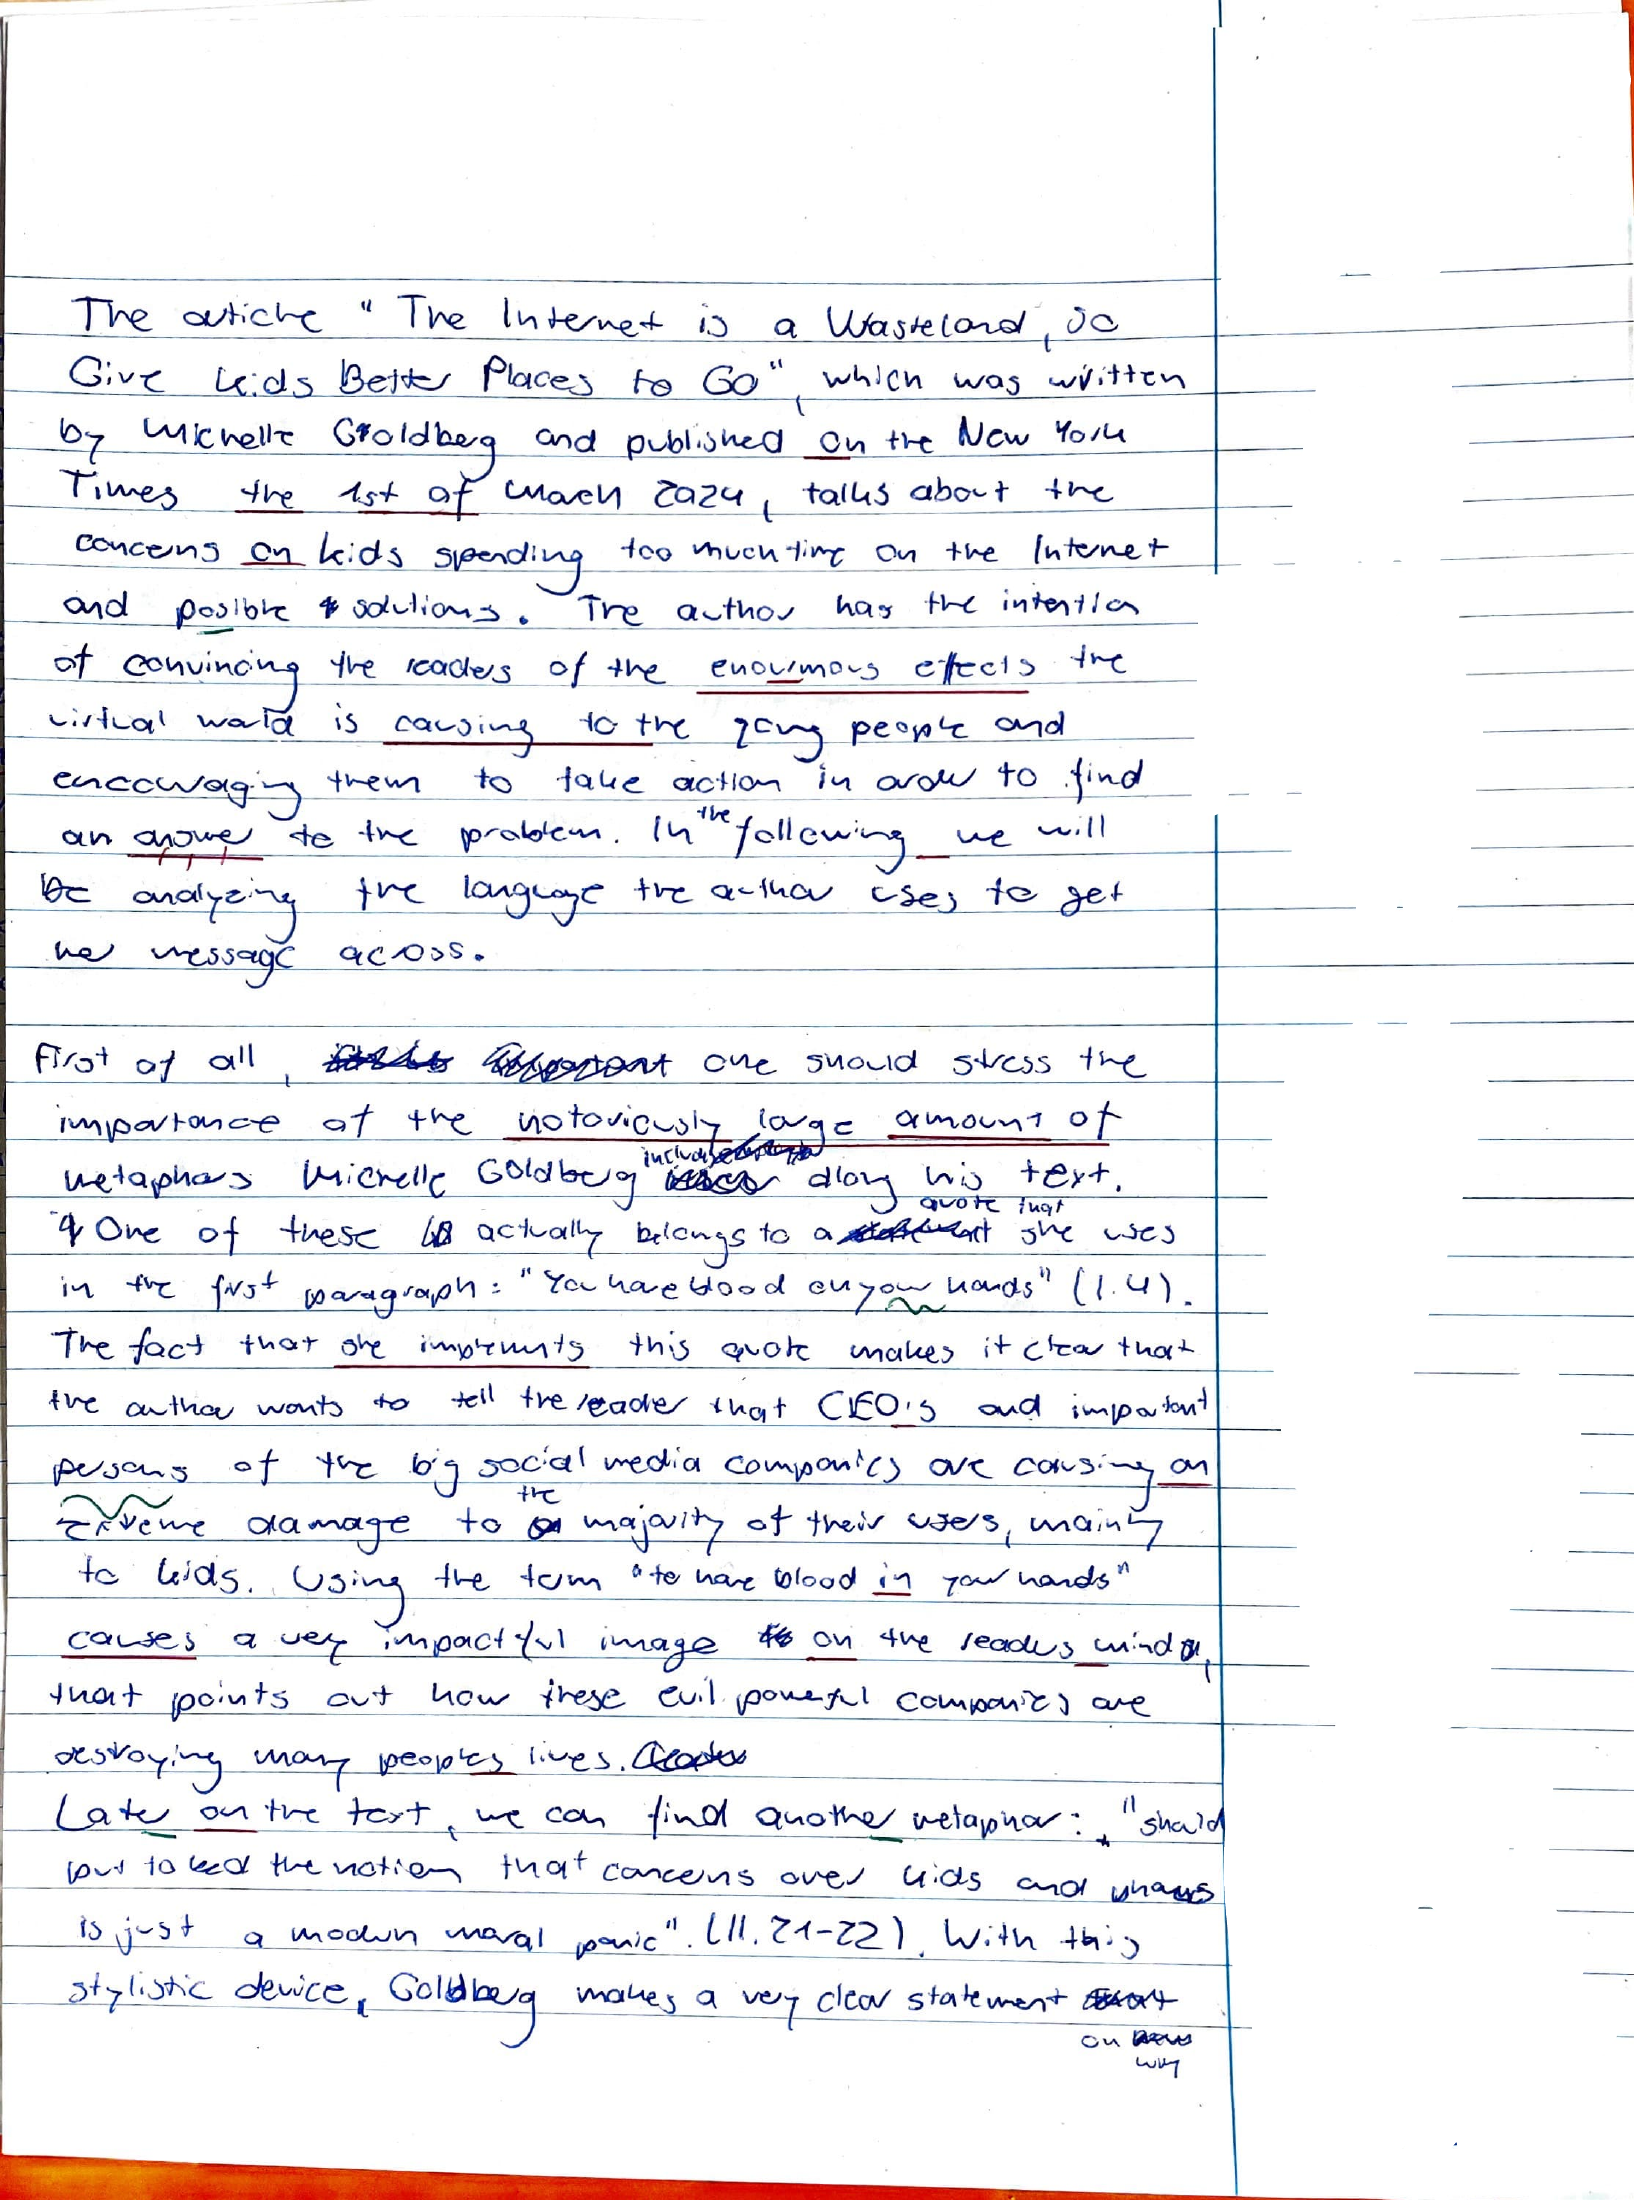 The article "The Internet is a Wasteland, so
Give kids Better Places to Go", which was written
by Michelle Goldberg and published on the New York
Times the 1st of March 2024, talks about the
concerns on kids spending too much time on the Internet
and posible solutions. The author has the intention
of convincing the readers of the enourmous effects the
virtual world is causing to the young people and
encouraging them to take action in order to find
an answer to the problem. In the following we will
be analyzing the language the author uses to get
her message across.
First of all, one should stress the
importance of the notoriously large amount of
metaphors Michelle Goldberg includes along his text.
One of these actually belongs to a quote that she uses
in the first paragraph: "You have blood on your hands" (l.4).
The fact that she implements this quote makes it clear that
the author wants to tell the reader that CEO's and important
persons of the big social media companies are causing an
extreme damage to the majority of their users, mainly
to kids. Using the term "to have blood in your hands"
causes a very impactful image on the readers mind,
that points out how these evil powerful companies are
destroying many peoples lives.
Later on the text, we can find another metaphor: "should
put to bed the notion that concerns over kids and phones
is just a modern moral panic". (ll. 21-22). With this
stylistic device, Goldberg makes a very clear statement
on why